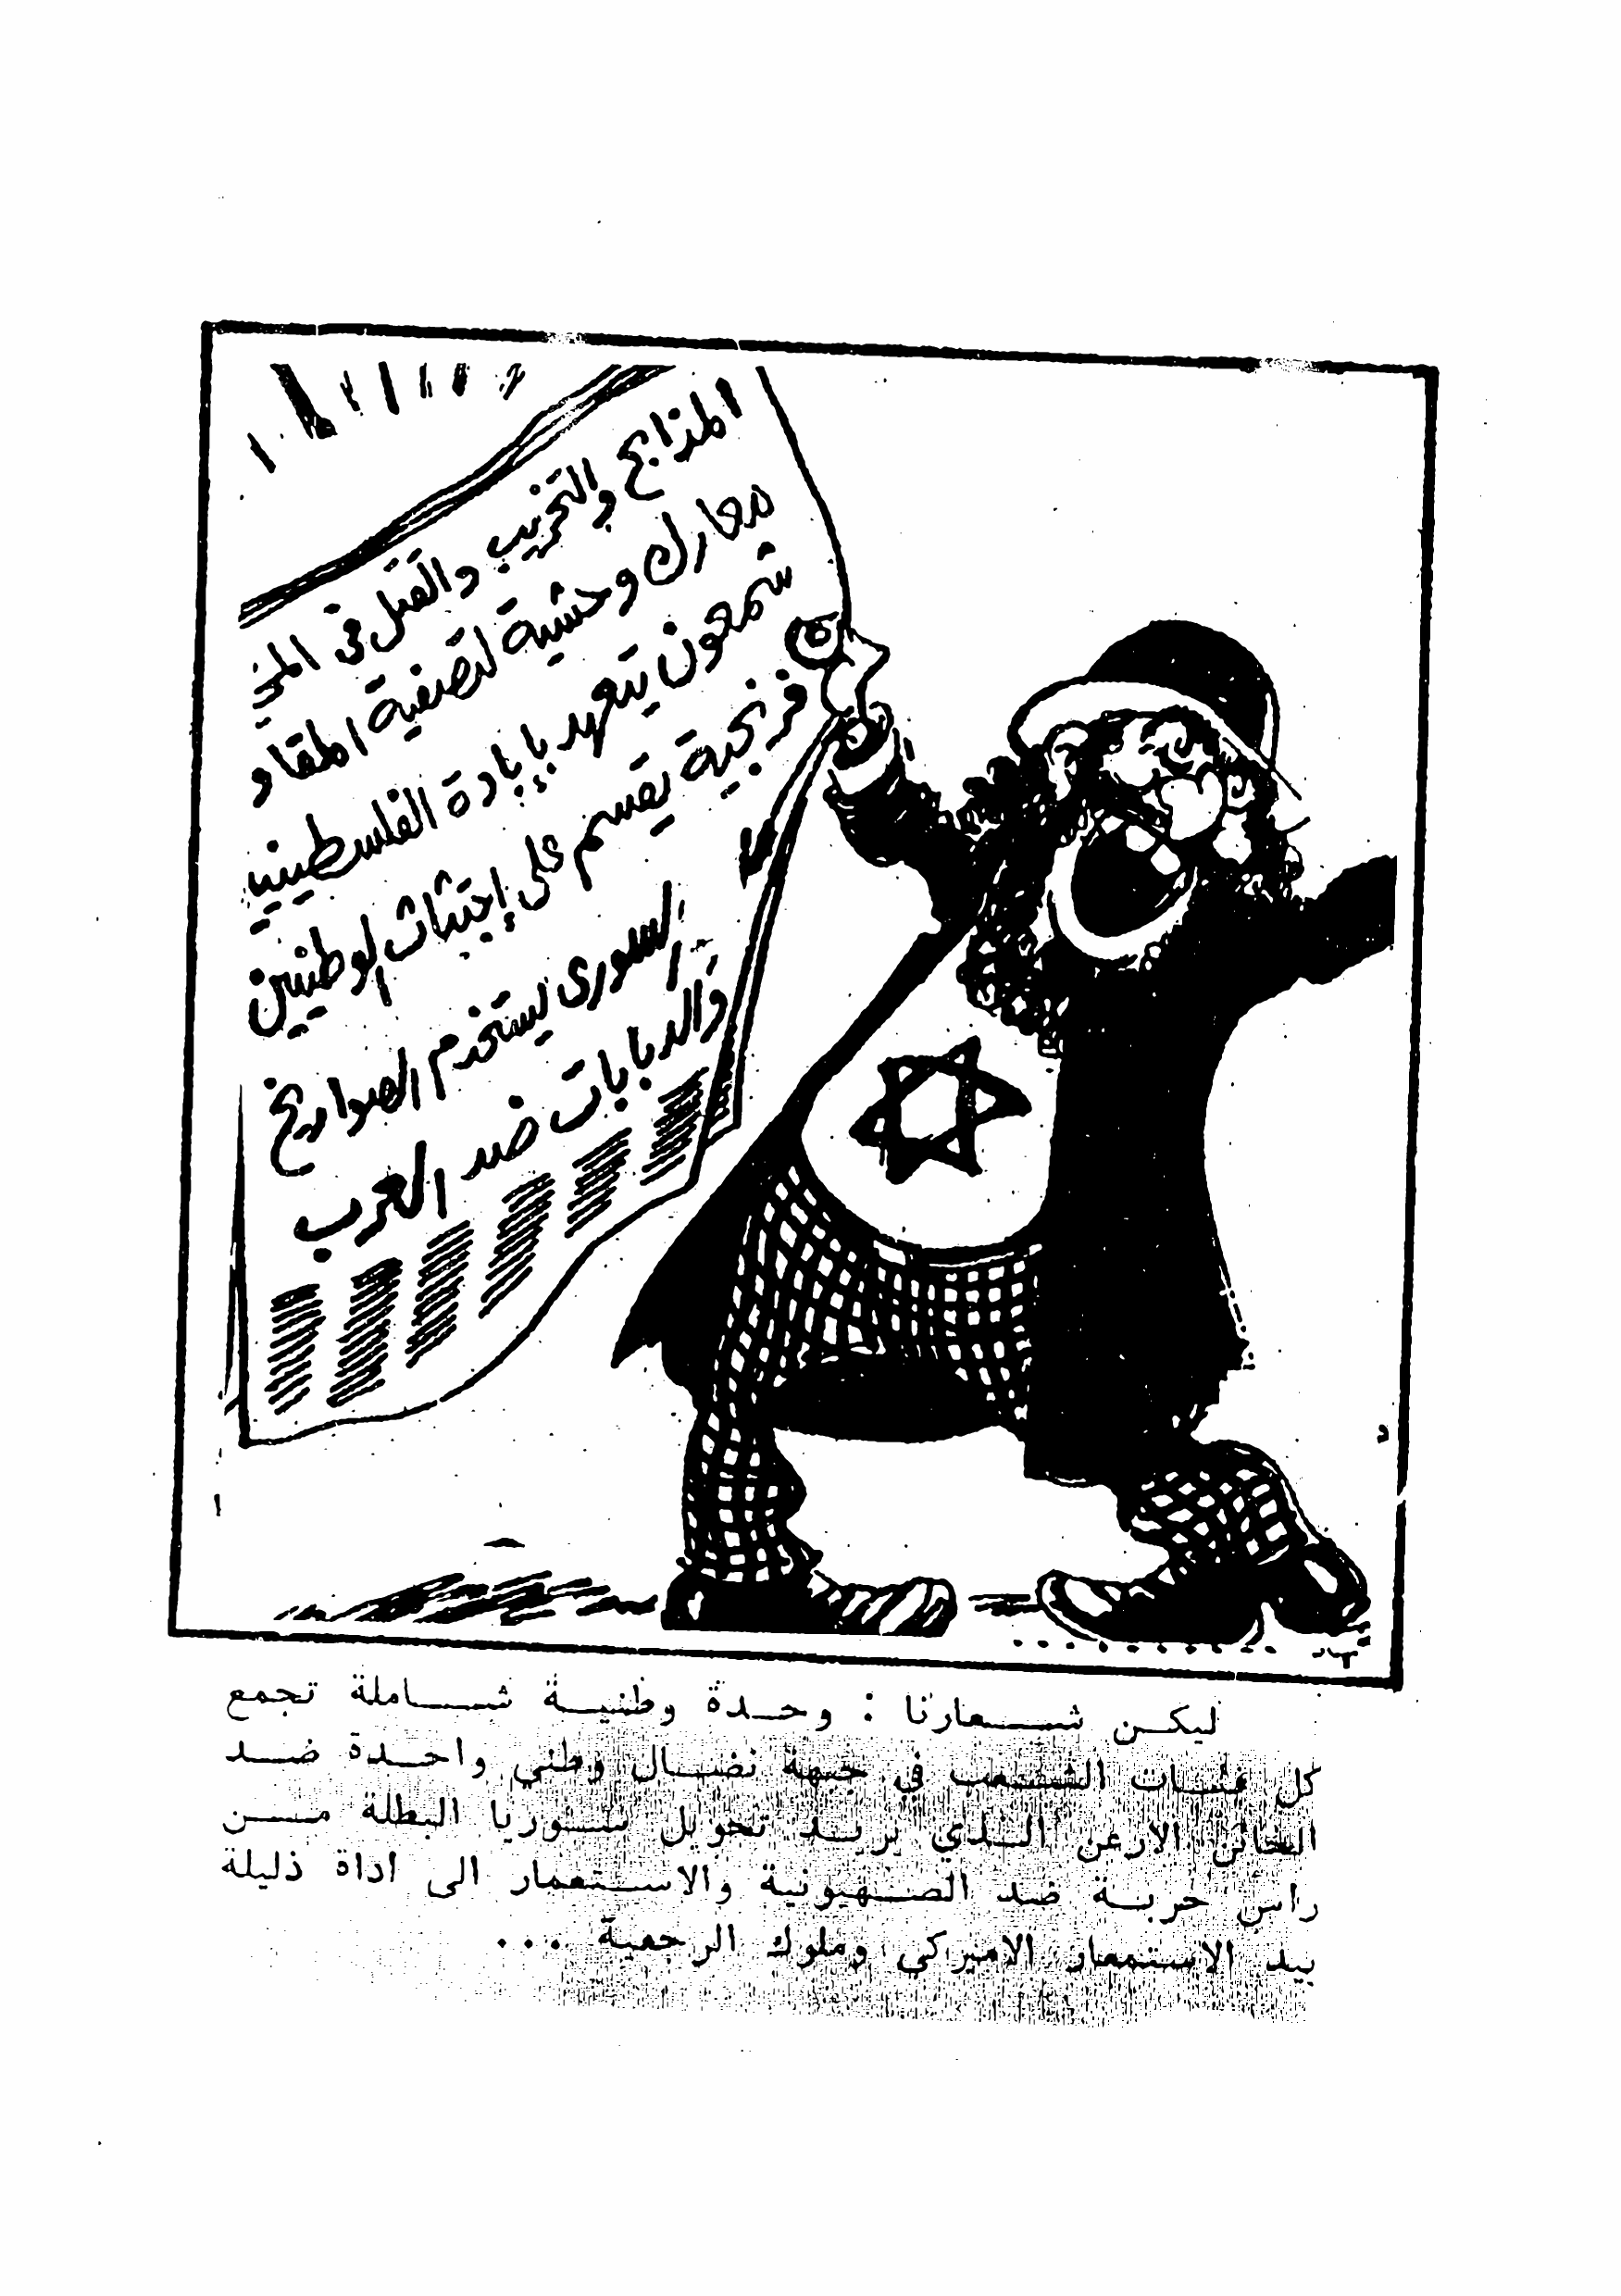 المذابح والتخريب والقتل في المخيـ
معارك وحشية لتصفية المقاو
شمعون يتعهد بإبادة الفلسطينيين
فرنجية يقسم على إجتثاث الوطنيين
السورى يستخدم الصواريخ
والدبابات ضد العرب
ليكن شعارنا : وحدة وطنية شاملة تجمع
كل فئات الشعب في جبهة نضال وطني واحدة ضد
الخائن الارعن الذي يريد تحويل سوريا البطلة من
راس حربة ضد الصهيونية والاستعمار الى اداة ذليلة
بيد الاستعمار الاميركي وملوك الرجعية ...